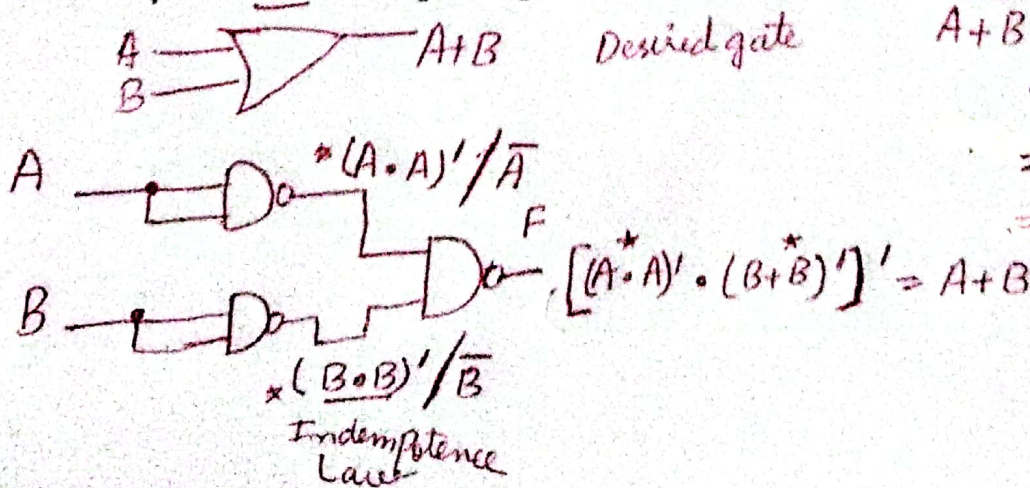 A A+B Desired gate A+B
B
A *(A.A)'/A̅ =
F
[(A*.A)' . (B+*B)']' = A+B
B
*(B.B)'/B̅
Indempotence
Law